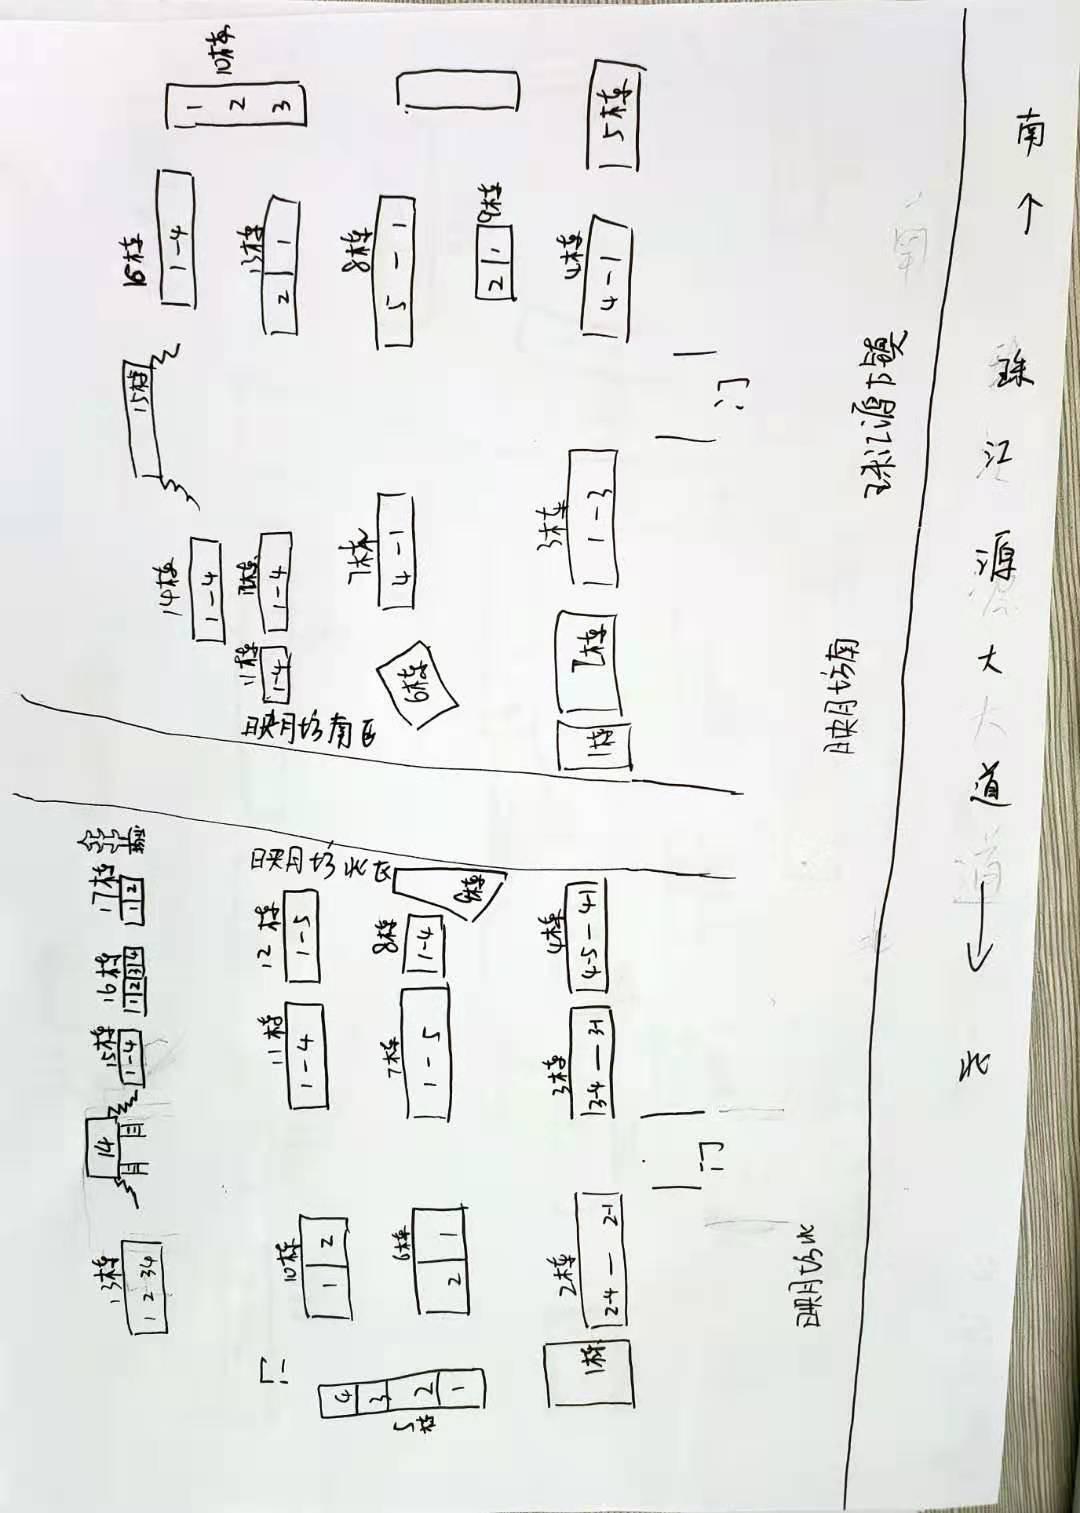 10栋
1 2 3
5栋
16栋
1-4
13栋
2 1
8栋
5-1
9栋
2 1
4栋
4-1
15栋
门
14栋
1-4
1-4
7栋
4-1
3栋
1-3
11栋
1-4
6栋
1栋
映月坊南区
映月坊北区
17栋
1 2
12栋
1-5
8栋
1-4
9栋
4栋
4-5-41
16栋
1 2 3 4
15栋
1-4
11栋
1-4
7栋
1-5
3栋
3-4—3-1
14
门
13栋
1 2 3 4
10栋
1 2
6栋
2 1
2栋
2-4—2-1
门
5栋
4 3 2 1
1栋
映月坊南
映月坊北
南
珠江源大道
北